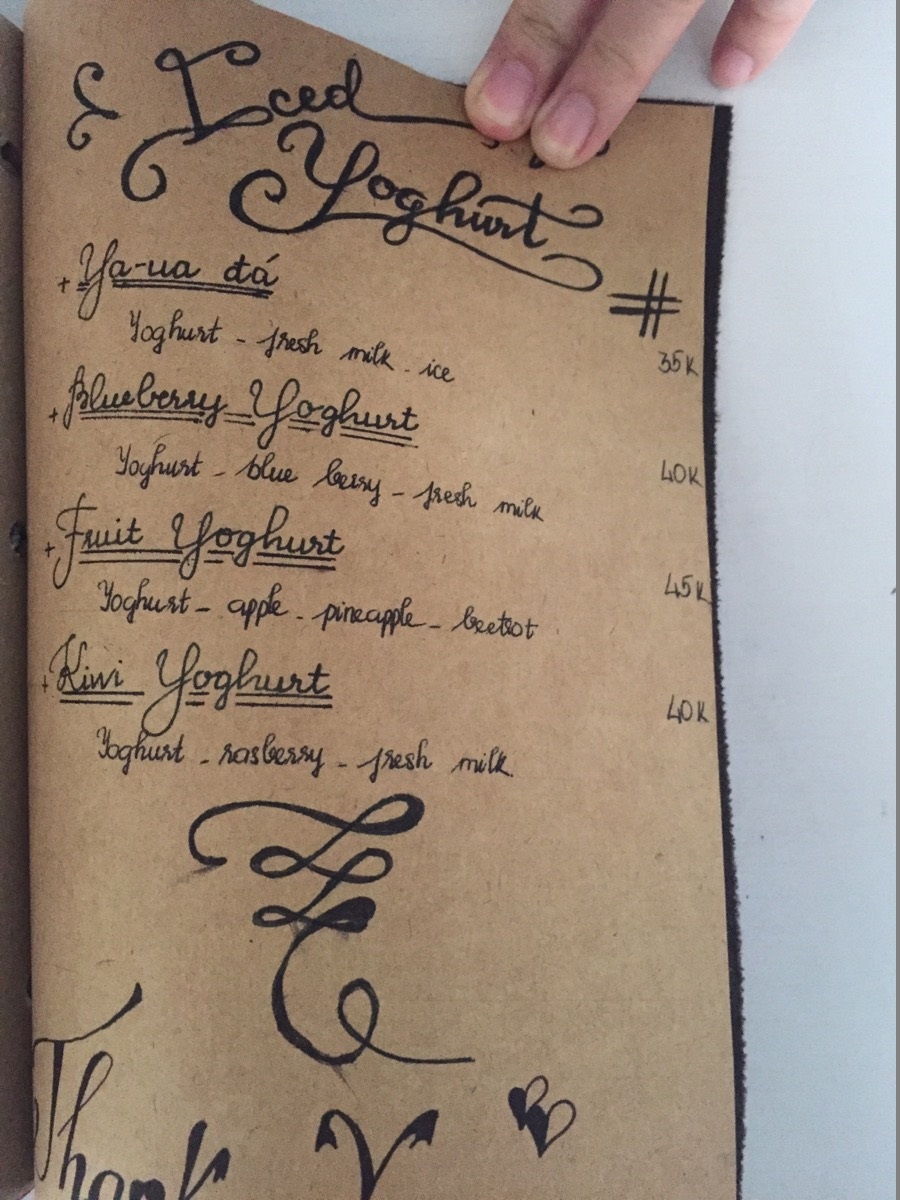 Iced
Yoghurt
#
+ Ya-ua đá
35K
Yoghurt - fresh milk - ice
+ Blueberry Yoghurt
40K
Yoghurt - blue berry - fresh milk
+ Fruit Yoghurt
45K
Yoghurt - apple - pineapple - beetrot
+ Kiwi Yoghurt
40K
Yoghurt - rasberry - fresh milk.
Thank